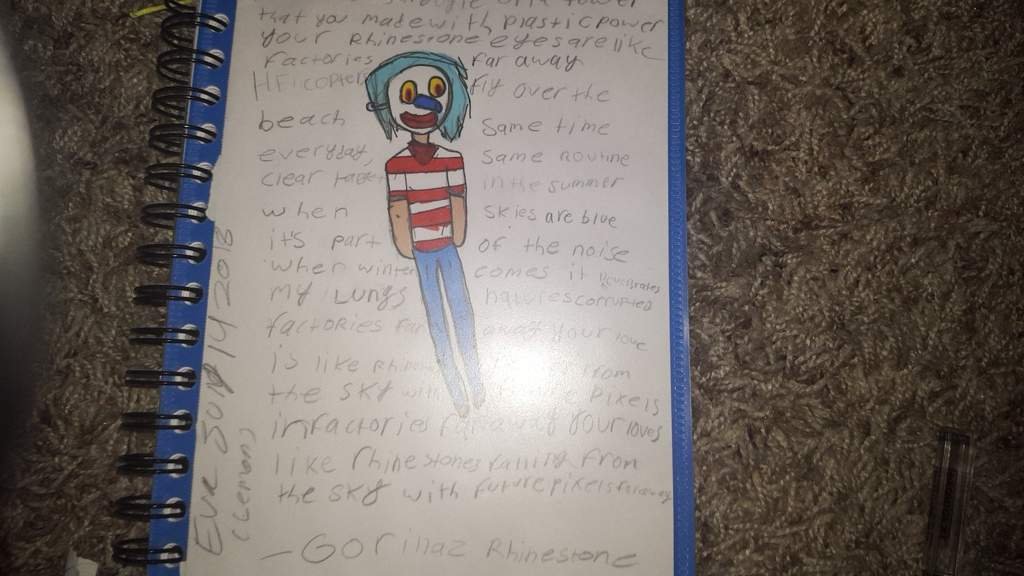 that you made with plastic power
your Rhinestone eyes are like
factories far away
fly over the
beach same time
everyday, same routine
clear in the summer
when skies are blue
it's part of the noise
when winter comes it
my Lungs natures corrupted
factories far away your love
Is like from
the sky with Pixels
in factories far away your loves
like rhinestones falling from
the sky with future pixels
- Gorillaz Rhinestone
Eva July 14 2018
Clemons